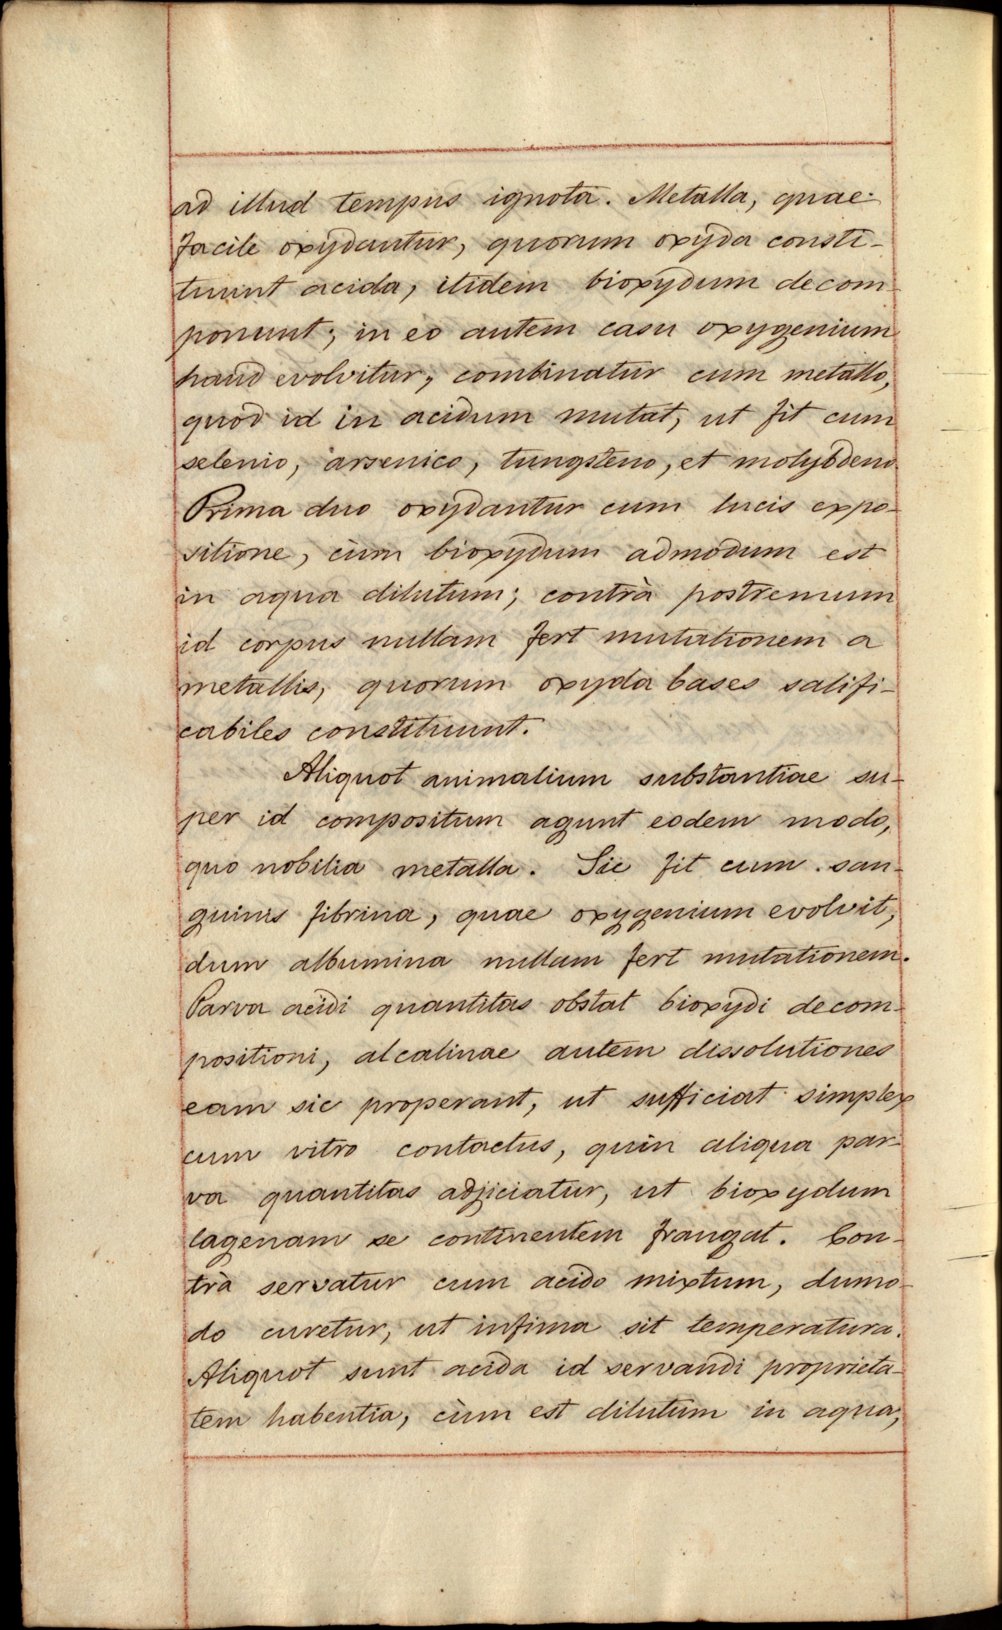 ad illud tempus ignota. Metalla, quae
facile oxydantur, quorum oxyda consti-
tuunt acida, itidem bioxydum decom-
ponunt; in eo autem casu oxygenium
haud evolvitur, combinatur cum metallo,
quod id in acidum mutat, ut fit cum
selenio, arsenico, tungsteno, et molybdeno.
Prima duo oxydantur cum lucis expo-
sitione, cùm bioxydum admodum est
in aqua dilutum; contrà postremum
id corpus nullam fert mutationem a
metallis, quorum oxyda bases salifi-
cabiles constituunt.
Aliquot animalium substantiae su-
per id compositum agunt eodem modo,
quo nobilia metalla. Sic fit cum san-
guinis fibrina, quae oxygenium evolvit,
dum albumina nullam fert mutationem.
Parva acidi quantitas obstat bioxydi decom-
positioni, alcalinae autem dissolutiones
eam sic properant, ut sufficiat simplex
cum vitro contactus, quin aliqua par-
va quantitas adjiciatur, ut bioxydum
lagenam se continentem frangat. Con-
trà servatur cum acido mixtum, dummo-
do curetur, ut infima sit temperatura.
Aliquot sunt acida id servandi proprieta-
tem habentia, cùm est dilutum in aqua,